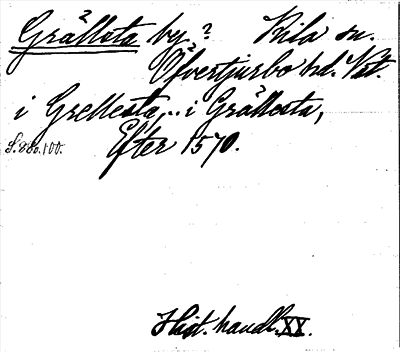 Grällsta by? Kila sn.
Öfvertjurbo hd. Vstl.
i Grellesta,.. i Grällesta,
Efter 1570.
Hist. handl. XX.